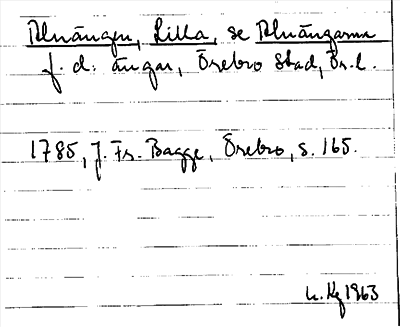 Alnängen, Lilla, se Alnängarna
f. d. ängar, Örebro stad, Ör. l.
1785, J. Fr. Bagge, Örebro, s. 165.
1963